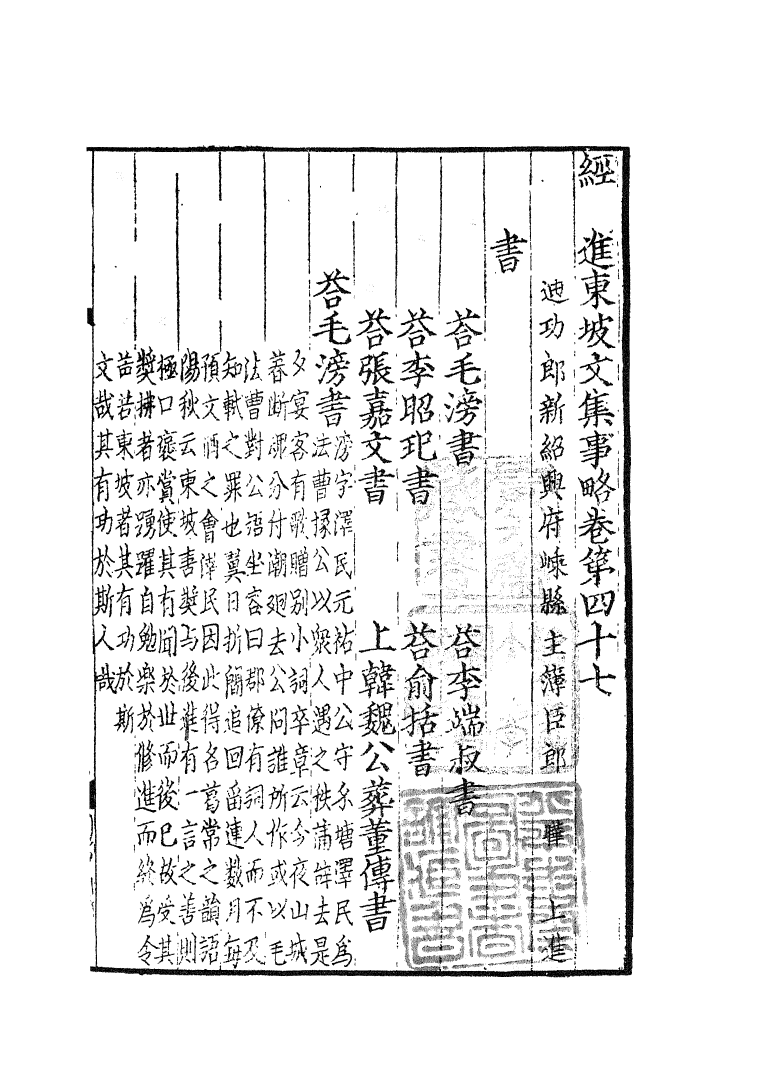 經 進東坡文集事略卷第四十七
迪功郎新紹興府嵊縣主簿臣郎 曄 上進
書
荅毛滂書 荅李端叔書
荅李昭玘書 荅俞括書
荅張嘉文書 上韓魏公葬董傳書
荅毛滂書
滂字澤民元祐中公守錢塘澤民爲
法曹掾公以衆人遇之秩滿辭去是
夕宴客有歌贈别小詞卒章云今夜山城
暮断魂分付潮廻去公問誰所作或以毛
法曹對公語坐客曰郡僚有詞人而不及
知軾之罪也翼日折簡追回留連数月每
預文酒之會澤民因此得名葛常之韻語
陽秋云東坡喜奬与後進有一言之善則
極口襃賞使其有聞於世而後已故受其
奬拂者亦踴躍自勉樂於脩進而終爲令
噐若東坡者其有功於斯
文哉其有功於斯人哉